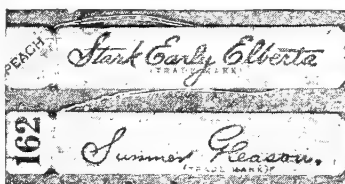 PEACH
Stark Early Elberta
(TRADE MARK)
162
Summer Gleason.
(TRADE MARK)